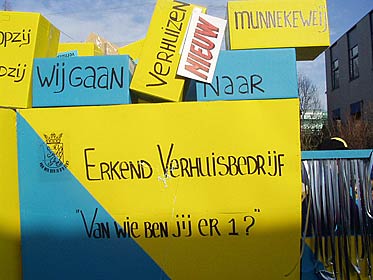 OPZIJ
OPZIJ
WIJ GAAN
VERHUIZEN
NIEUW
NAAR
MUNNEKEWEIJ
ERKEND VERHUISBEDRIJF
"VAN WIE BEN JIJ ER 1?"